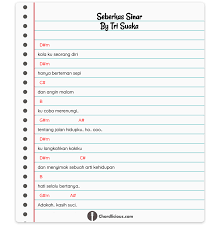 Seberkas Sinar
By Tri Suaka
D#m
kala ku seorang diri
D#m
hanya berteman sepi
C#
dan angin malam
B
ku coba merenungi.
G#m A#m
tentang jalan hidupku, ho, ooo.
D#m
ku langkahkan kakiku
D#m C#
dan menyimak sebuah arti kehidupan
B
hati selalu bertanya..
G#m A#
Adakah, kasih suci.
Chordlicious.com